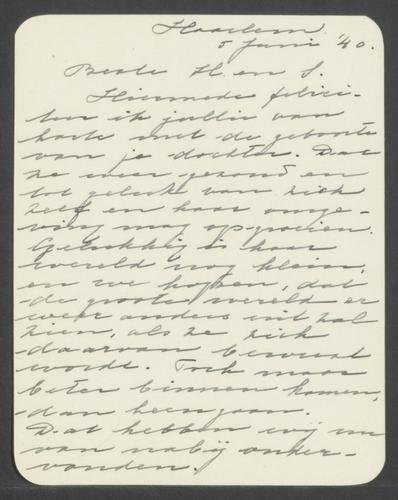 Haarlem
5 Juni '40.
Beste H. en S.
Hiermede felici-
teer ik jullie van
harte met de geboorte
van je dochter. Dat
ze weer gezond en
tot geluk van zich
zelf en haar omge-
ving mag opgroeien.
Gelukkig is haar
wereld nog klein,
en we hopen, dat
de groote wereld er
weer anders uit zal
zien, als ze zich
daarvan bewust
wordt. Toch maar
beter binnen komen,
dan heengaan.
Dat hebben wij nu
van nabij onder-
vonden.